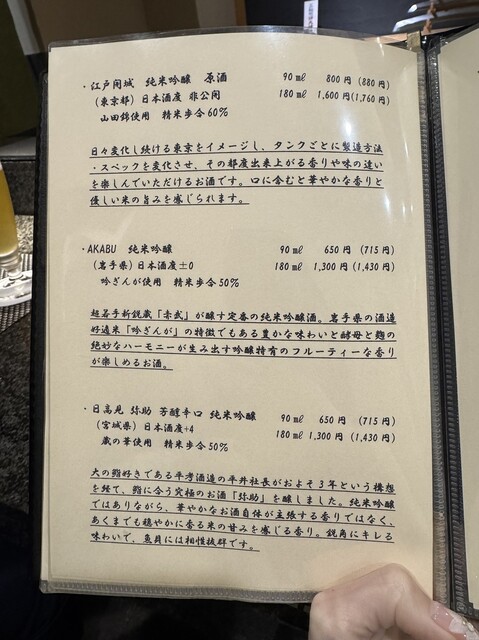 ・江戸開城 純米吟醸 原酒 90㎖ 800円 (880円)
(東京都) 日本酒度 非公開 180㎖ 1,600円 (1,760円)
山田錦使用 精米歩合60%
日々変化し続ける東京をイメージし、タンクごとに製造方法
・スペックを変化させ、その都度出来上がる香りや味の違い
を楽しんでいただけるお酒です。口に含むと華やかな香りと
優しい米の旨みを感じられます。
・AKABU 純米吟醸 90㎖ 650円 (715円)
(岩手県) 日本酒度±0 180㎖ 1,300円 (1,430円)
吟ぎんが使用 精米歩合50%
超若手新鋭蔵「赤武」が醸す定番の純米吟醸酒。岩手県の酒造
好適米「吟ぎんが」の特徴でもある豊かな味わいと酵母と麹の
絶妙なハーモニーが生み出す吟醸特有のフルーティーな香り
が楽しめるお酒。
・日高見 弥助 芳醇辛口 純米吟醸 90㎖ 650円 (715円)
(宮城県) 日本酒度+4 180㎖ 1,300円 (1,430円)
蔵の華使用 精米歩合50%
大の鮨好きである平孝酒造の平井社長がおよそ3年という構想
を経て、鮨に合う究極のお酒「弥助」を醸しました。純米吟醸
ではありながら、華やかなお酒自体が主張する香りではなく、
あくまでも穏やかに香る米の甘みを感じる香り。鋭角にキレる
味わいで、魚貝には相性抜群です。